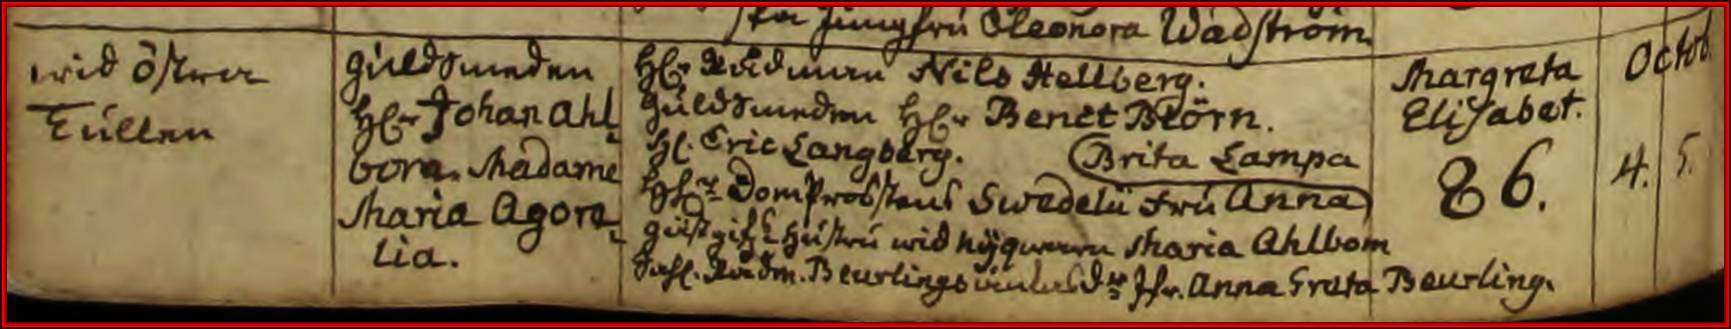 Jungfru Eleonora Wadström
wid östra
Tullen
guldsmeden
Hr Johan Ahl
bom. Madame
Maria Agore
lia.
Hr Rådman Nils Hellberg.
guldsmeden Hr Benct Biörn.
Hl. Eric Langberg. Brita Lampa
DomProbstens Swedelii fru Anna
hustru wid nyqwarn Maria Ahlbom
Sahl. Rådm. Beurlings Jfr. Anna Greta Beurling.
Margreta
Elisabet.
86.
Octob.
4. 5.